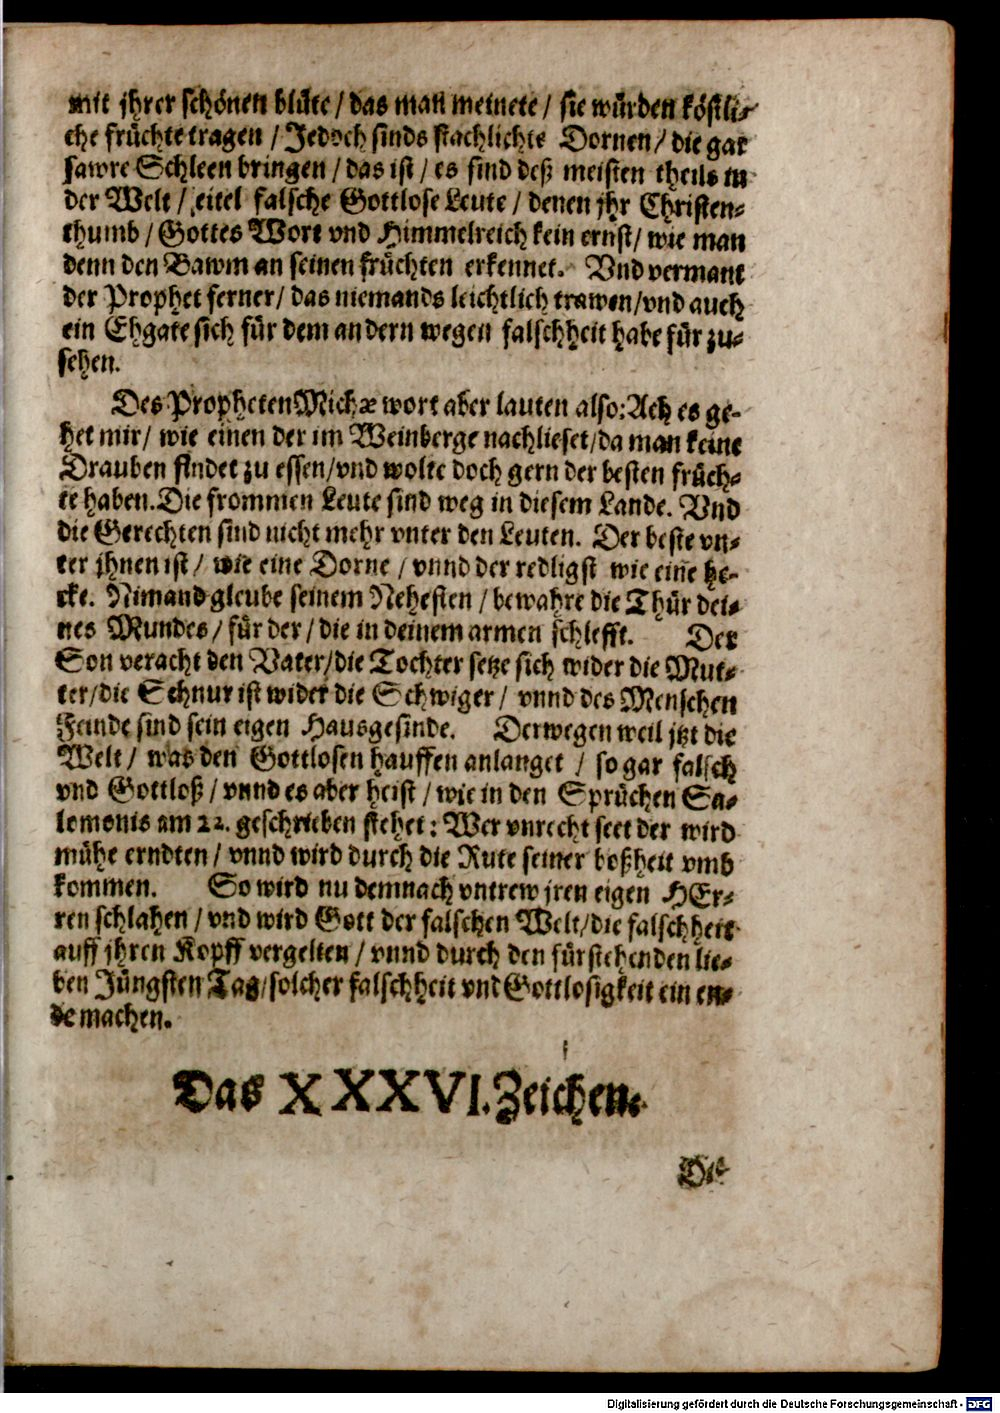 mit jhrer schönen blüte / das man meinete / sie würden köstli-
che früchte tragen / Jedoch sinds stachlichte Dornen / die gar
sawre Schleen bringen / das ist / es sind deß meisten theils in
der Welt / eitel falsche Gottlose Leute / denen jhr Christen-
thumb / Gottes Wort vnd Himmelreich kein ernst / wie man
denn den Bawm an seinen früchten erkennet. Vnd vermant
der Prophet ferner / das niemands leichtlich trawen / vnd auch
ein Ehgate sich für dem andern wegen falschheit habe für zu-
sehen.
Des Propheten Michæ wort aber lauten also: Ach es ge-
het mir / wie einen der im Weinberge nachlieset / da man keine
Drauben findet zu essen / vnd wolte doch gern der besten früch-
te haben. Die frommen Leute sind weg in diesem Lande. Vnd
die Gerechten sind nicht mehr vnter den Leuten. Der beste vn-
ter jhnen ist / wie eine Dorne / vnnd der redligst wie eine he-
cke. Nimand gleube seinem Nehesten / bewahre die Thür dei-
nes Mundes / für der / die in deinem armen schlefft. Der
Son veracht den Vater / die Tochter setze sich wider die Mut-
ter / die Schnur ist wider die Schwiger / vnnd des Menschen
Feinde sind sein eigen Hausgesinde. Derwegen weil jtzt die
Welt / was den Gottlosen hauffen anlanget / so gar falsch
vnd Gottloß / vnnd es aber heist / wie in den Sprüchen Sa-
lomonis am 22. geschrieben stehet: Wer vnrecht seet der wird
mühe erndten / vnnd wird durch die Rute seiner boßheit vmb
kommen. So wird nu demnach vntrew jren eigen HEr-
ren schlahen / vnd wird Gott der falschen Welt / die falschheit
auff jhren Kopff vergelten / vnnd durch den fürstehenden lie-
ben Jüngsten Tag / solcher falschheit vnd Gottlosigkeit ein en-
de machen.
Das XXXVI. Zeichen.
Digitalisierung gefördert durch die Deutsche Forschungsgemeinschaft - DFG